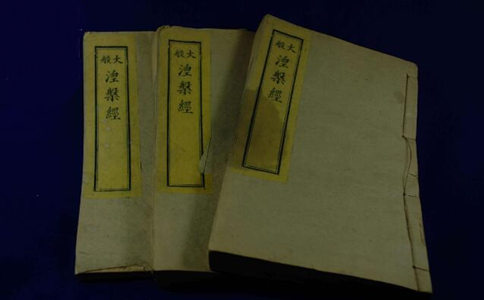 大般
涅槃經
大般
涅槃經
大般
涅槃經